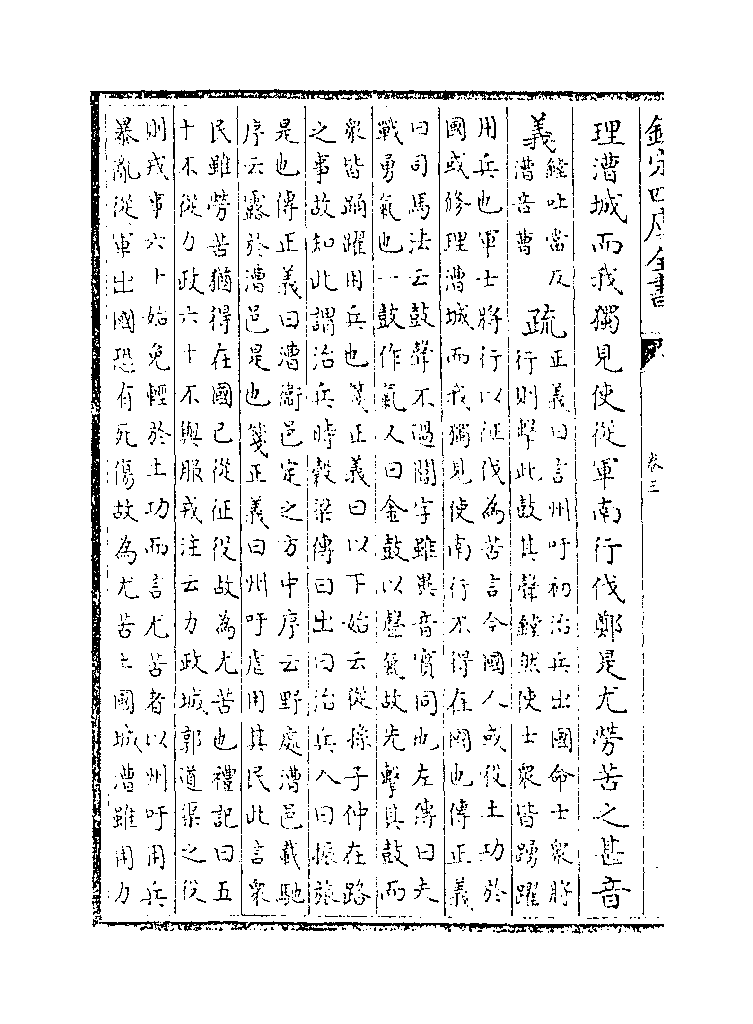 欽定四庫全書
卷三
理漕城而我獨見使從軍南行伐鄭是尤勞苦之甚音
義
鏜吐當反
漕音曹
疏
正義曰言州吁初治兵出國命士衆將
行則擊此鼓其聲鏜然使士衆皆踴躍
用兵也軍士將行以征伐為苦言今國人或役土功於
國或修理漕城而我獨見使南行不得在國也傳正義
曰司馬法云鼓聲不過閶字雖異音實同也左傳曰夫
戰勇氣也一鼓作氣又曰金鼓以聲氣故先擊其鼓而
衆皆踊躍用兵也箋正義曰以下始云從孫子仲在路
之事故知此謂治兵時穀梁傳曰出曰治兵入曰振旅
是也傳正義曰漕衛邑定之方中序云野處漕邑載馳
序云露於漕邑是也箋正義曰州吁虐用其民此言衆
民雖勞苦猶得在國已從征役故為尤苦也禮記曰五
十不從力政六十不與服戎注云力政城郭道渠之役
則戎事六十始免輕於土功而言尤苦者以州吁用兵
暴亂從軍出國恐有死傷故為尤苦土國城漕雖用力